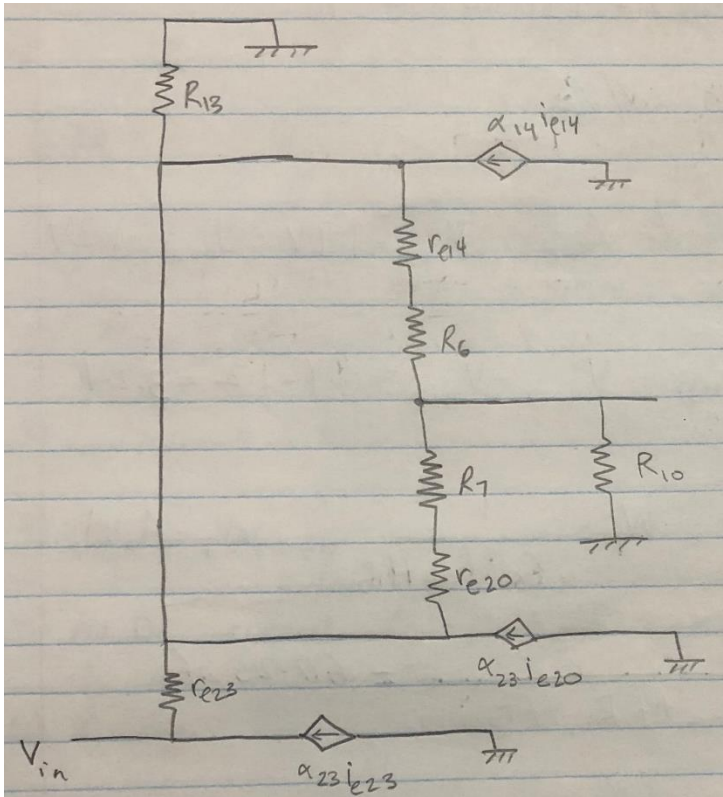 R13
α14 ie14
re14
R6
R7
R10
re20
α23 ie20
re23
Vin
α23 ie23